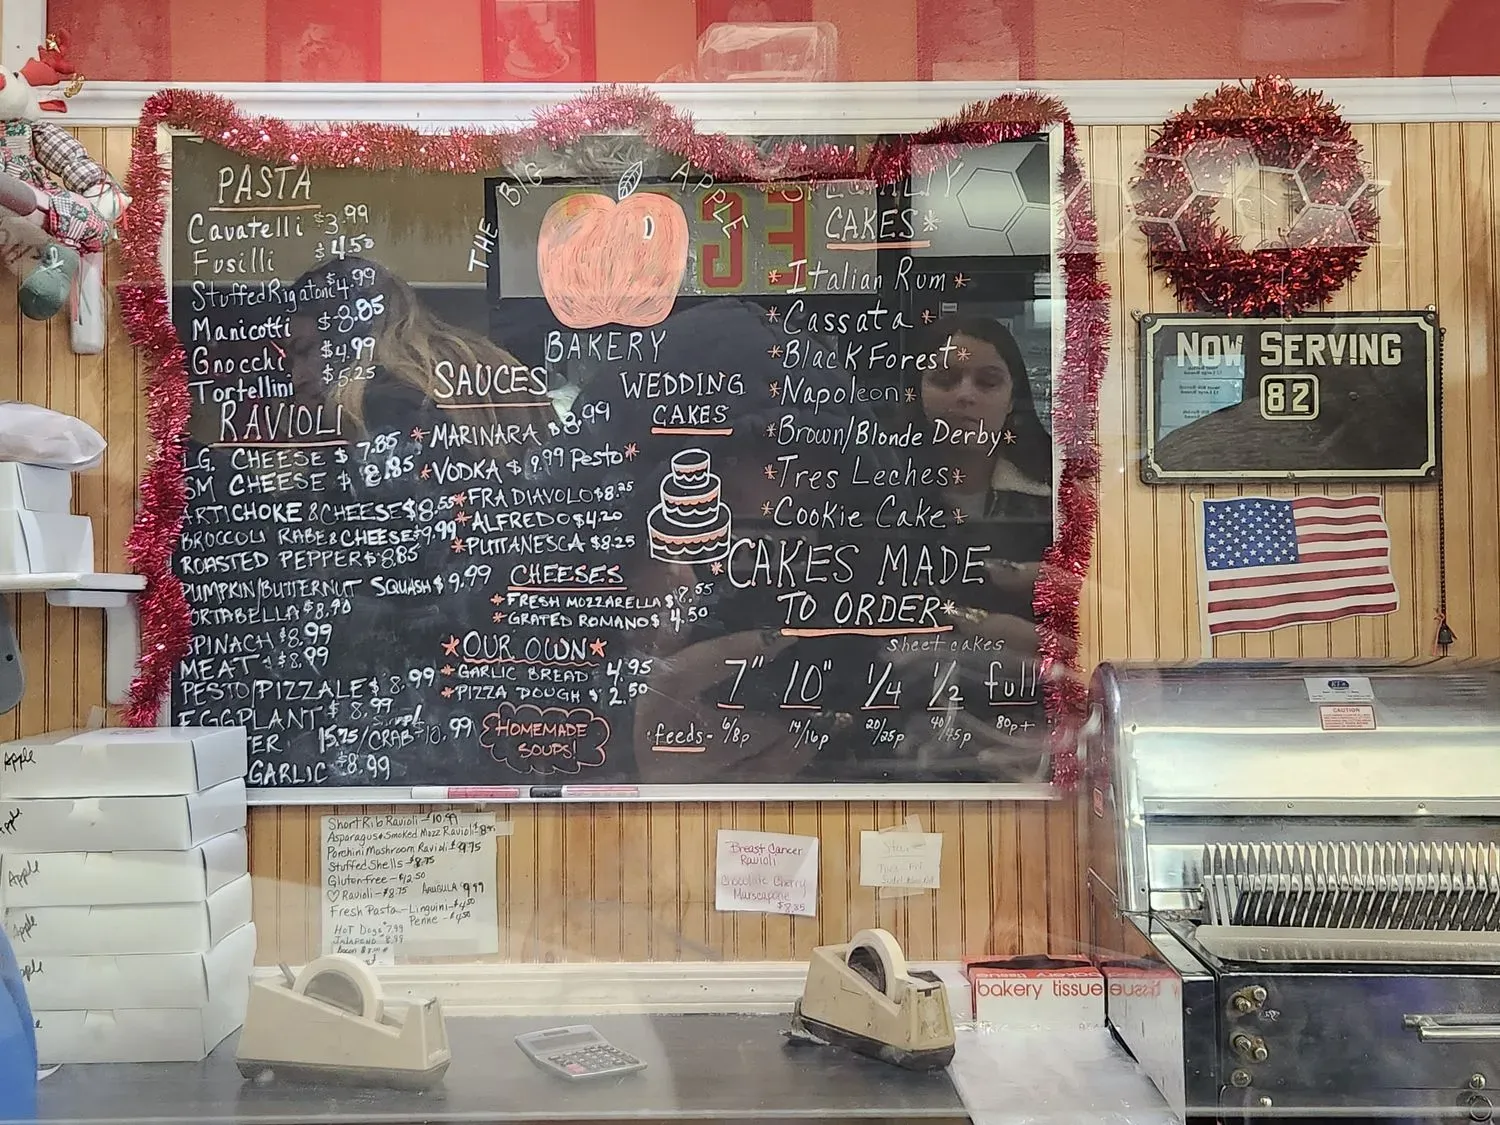 PASTA
Cavatelli $3.99
Fusilli $4.50
Stuffed Rigatoni $4.99
Manicotti $8.85
Gnocchi $4.99
Tortellini $5.25
RAVIOLI
LG. CHEESE $7.85
SM CHEESE $8.85
ARTICHOKE & CHEESE $8.55
BROCCOLI RABE & CHEESE $9.99
ROASTED PEPPER $8.85
PUMPKIN/BUTTERNUT SQUASH $9.99
PORTABELLA $8.90
SPINACH $8.99
MEAT $8.99
PESTO/PIZZALE $8.99
EGGPLANT $8.99
15.75/CRAB 10.99
GARLIC $8.99
THE BIG APPLE
BAKERY
SAUCES
*MARINARA $8.99
*VODKA $9.99 Pesto*
*FRA DIAVOLO $8.25
*ALFREDO $4.20
*PUTTANESCA $8.25
CHEESES
*FRESH MOZZARELLA $8.55
*GRATED ROMANO $4.50
*OUR OWN*
*GARLIC BREAD 4.95
*PIZZA DOUGH $2.50
HOMEMADE
SOUPS!
WEDDING
CAKES
SPECIALTY
CAKES*
*Italian Rum*
*Cassata*
*Black Forest*
*Napoleon*
*Brown/Blonde Derby*
*Tres Leches*
*Cookie Cake*
*CAKES MADE
TO ORDER*
sheet cakes
7" 10" 1/4 1/2 full
feeds- 6/8p 14/16p 20/25p 40/45p 80p+
NOW SERVING
82
CAUTION
Apple
Apple
Apple
Apple
Apple
Short Rib Ravioli - 10.99
Asparagus & Smoked Mozz Ravioli
Porchini Mushroom Ravioli $9.75
Stuffed Shells - $8.75
Gluten Free - $12.50
♡ Ravioli - $8.75 ARUGULA 9.99
Fresh Pasta - Linguini - $4.50
Penne - $4.50
HOT Dogs $7.99
JALAPENO 8.99
Bacon
Breast Cancer
Ravioli
Chocolate Cherry
Marscapone
$8.85
bakery tissue